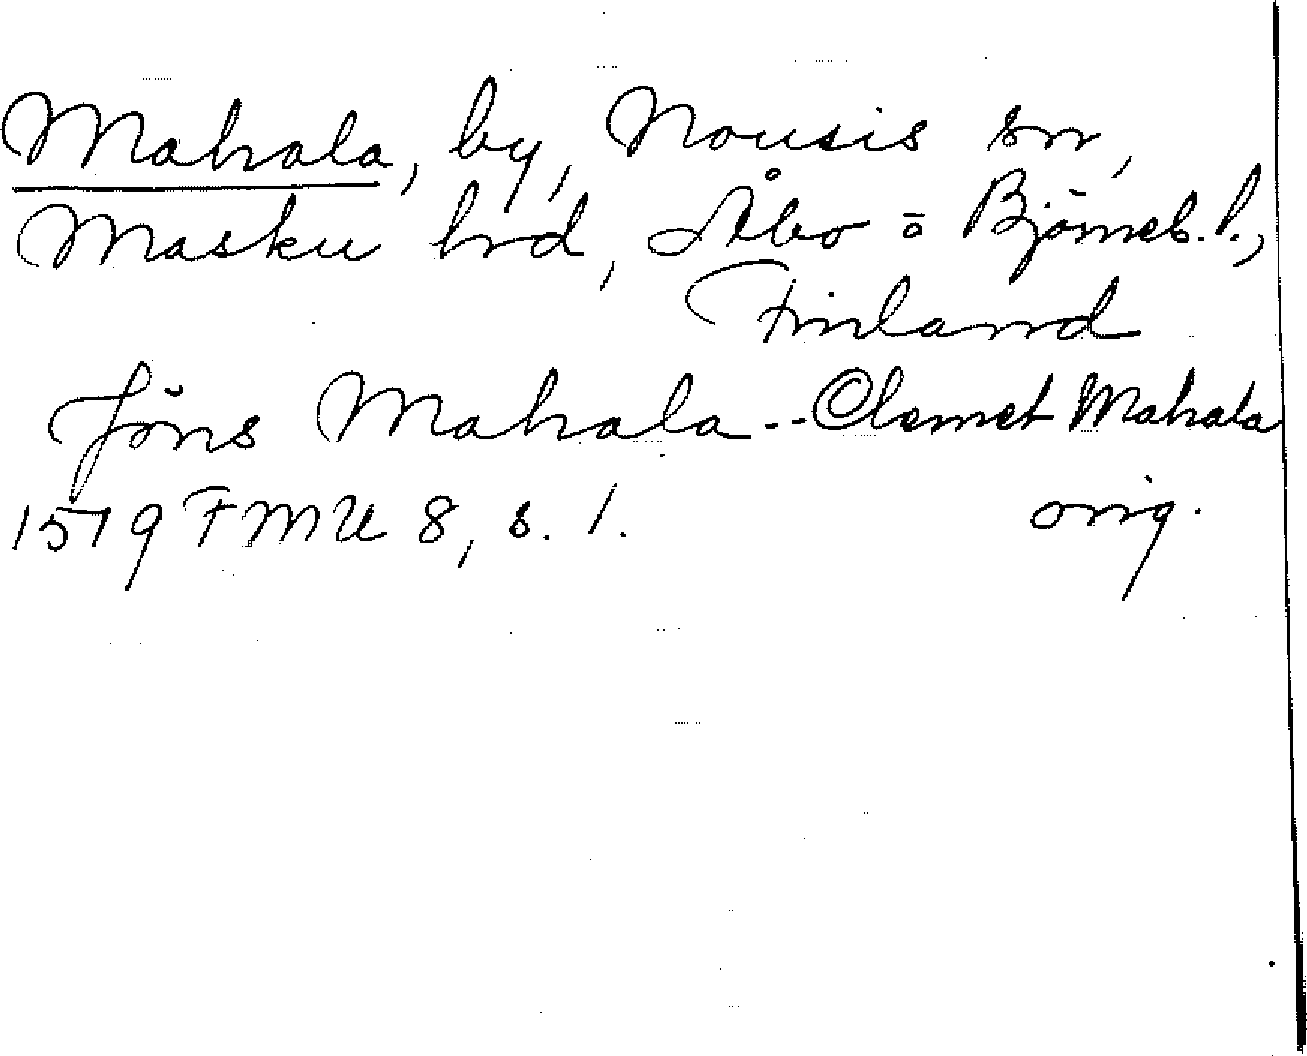 Mahala, by, Nousis sn,
Masku hd, Åbo o Björneb. l.,
Finland
Jöns Mahala -- Clemet Mahala
1519 FMU 8, s. 1. orig.